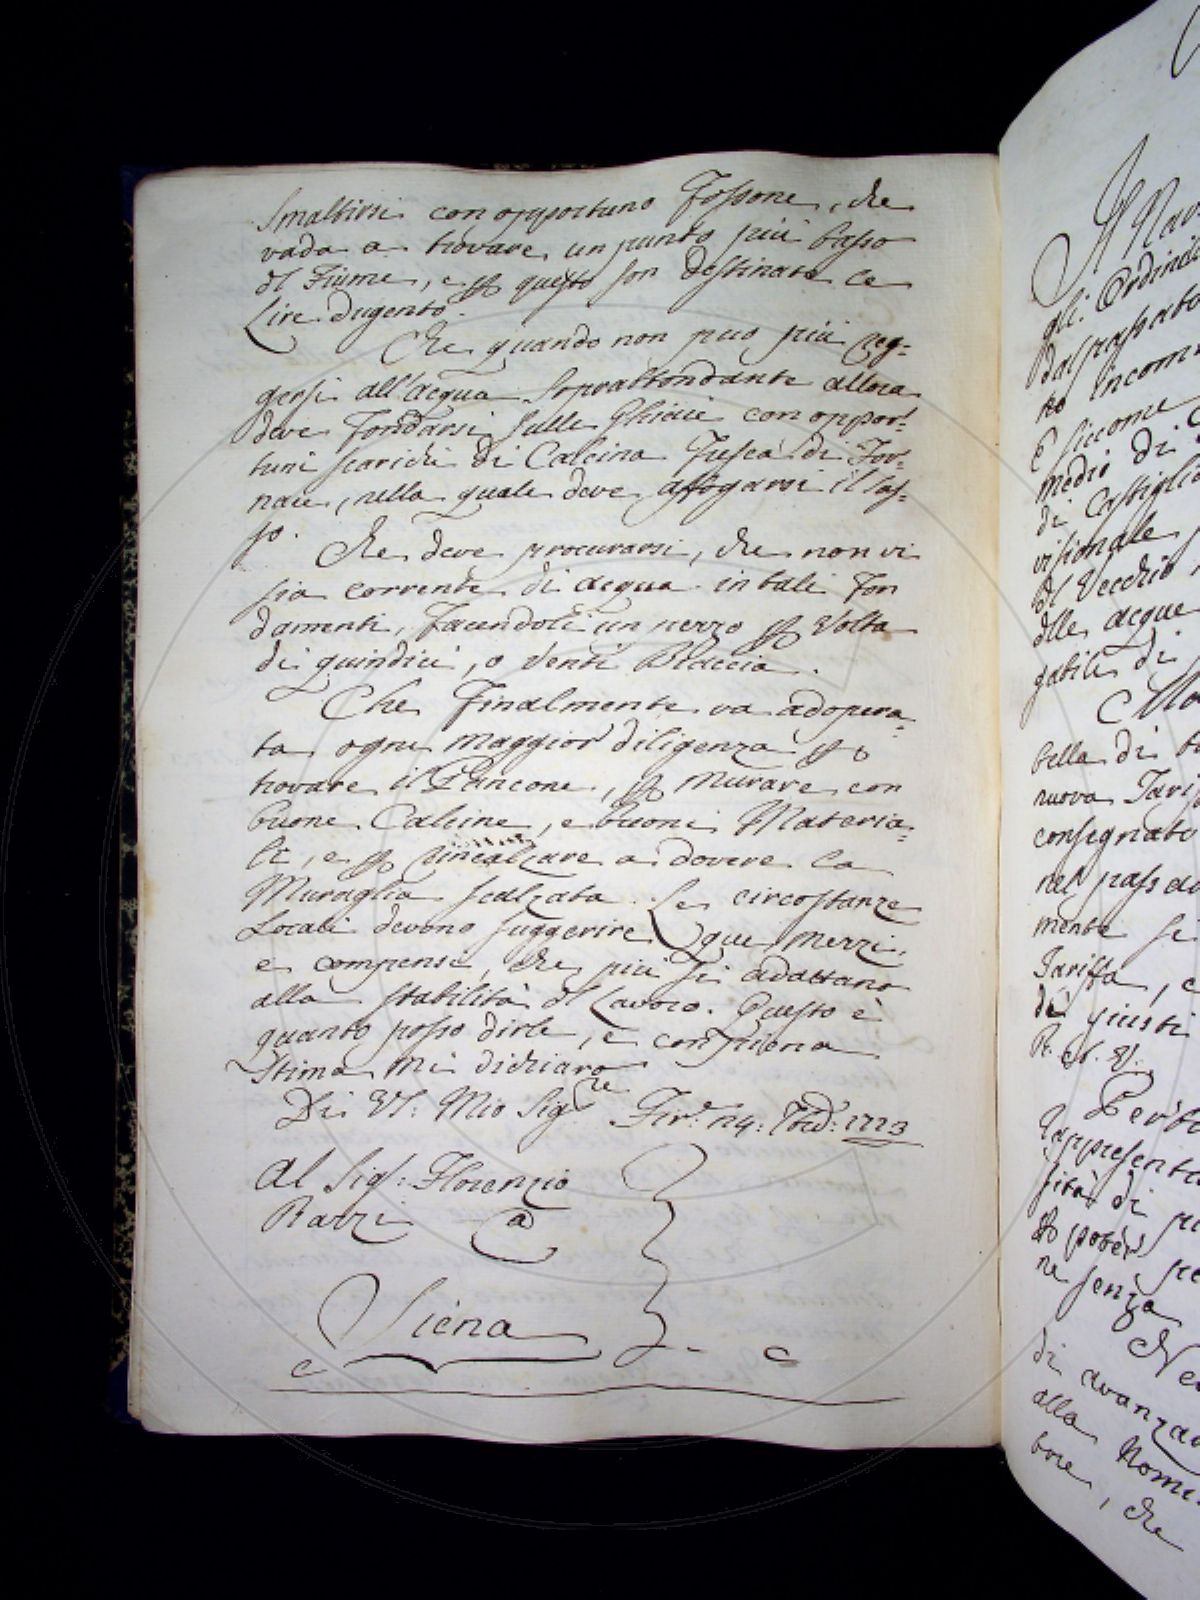 Smaltirsi con opportuno Fossone, che
vada a trovare un punto più basso
del Fiume, e per questo son destinate le
Lire dugento.
Che quando non può più reg=
gersi all'acqua soprabbondante allora
deve Fondarsi sulle Ghiaie con oppor=
tuni scarichi di Calcina Fresca di For=
nace, nella quale deve affogarsi il sas=
so.
Che deve procurarsi, che non vi
sia corrente di acqua in tali Fon
damenti, Facendoli un pezzo per Volta
di quindici, o Venti Braccia.
Che Finalmente va adopera=
ta ogni maggior diligenza per
trovare il Pancone, per murare con
buone Calcine, e buoni Materia=
li, e per rincalzare a dovere la
Muraglia scalzata. Le circostanze
Locali devono suggerire que' mezzi,
e compensi, che più si adattano
alla stabilità del Lavoro. Questo è
quanto posso dirle, e con piena
Stima mi dichiaro
Di VS: Mio Sigre Fire 24: 1773
Al Sigr: Florenzio
Razzi a
Siena
Il Nav
gli Ordinar
dal passato
no incom
E siccome
medio di
di Castiglio
visionale
del Vecchio
delle acque
gabile di
Mo
bella di
nuova Tarif
consegnato
nel passa
mente se
Tariffa, e
di giusti
Per
rappresenta
sità di
do poter
ne senza
Ne
di avanza
alla Nomi
tore, che